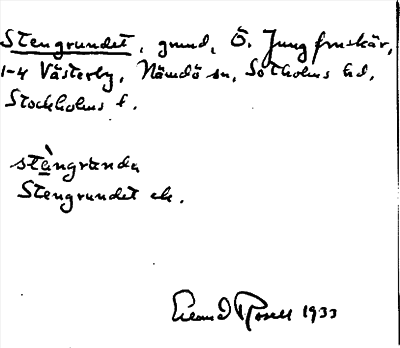 Stengrundet, grund, Ö. Jungfruskär,
1-4 Västerby, Nämdö sn, Sotholms hd,
Stockholms l.
stä̀ngrundə
Stengrundet ek.
1933